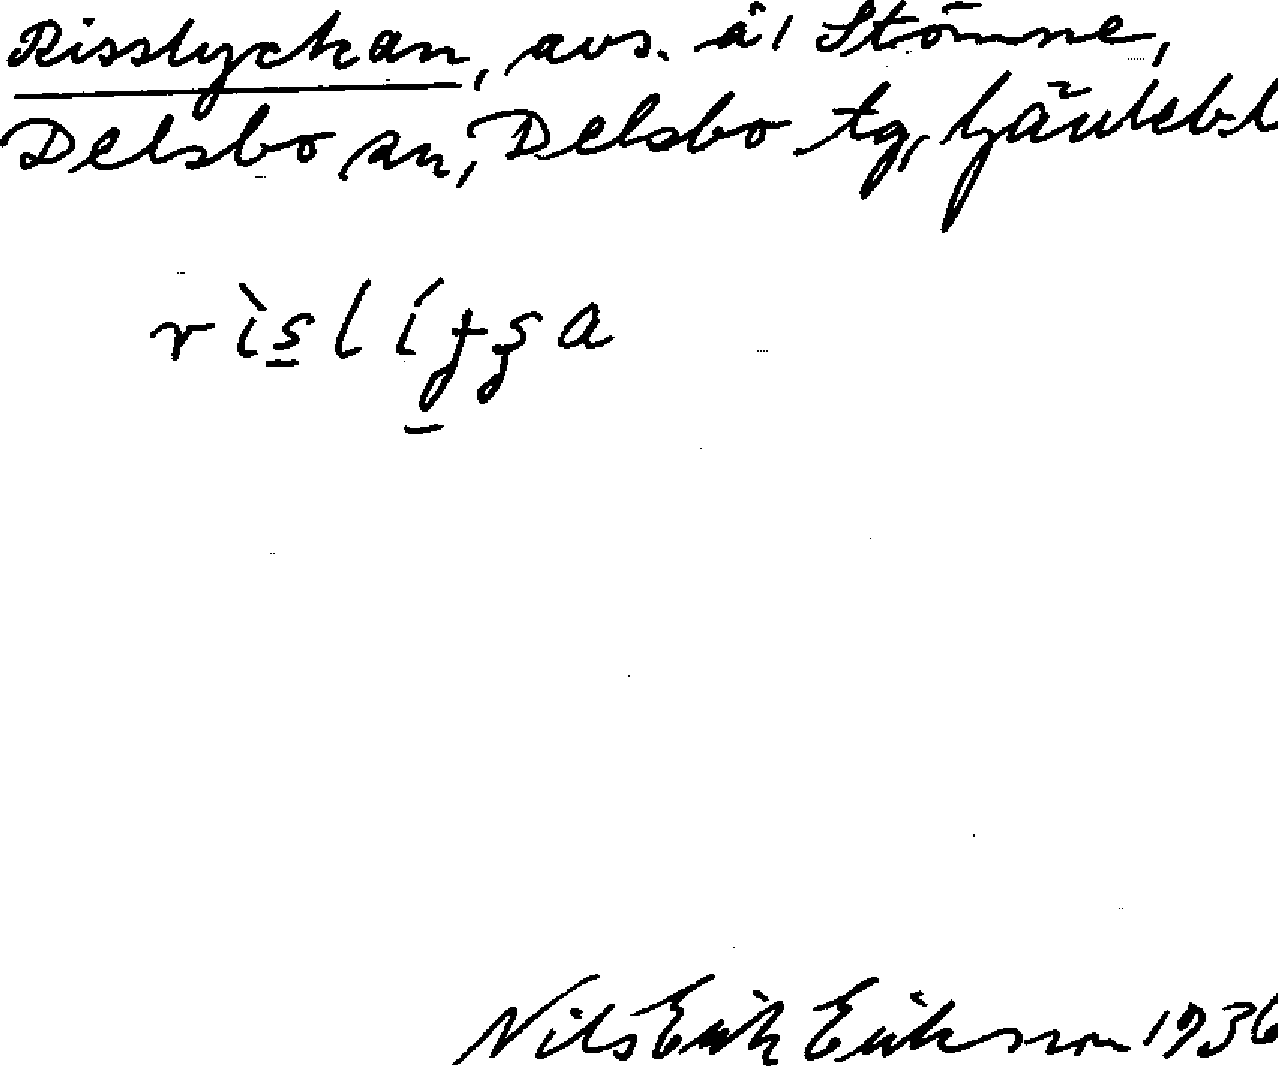 Risslyckan, avs. å / Stömne,
Delsbo sn, Delsbo tg, Gävleb. l
Nils Erik Erikson 1936